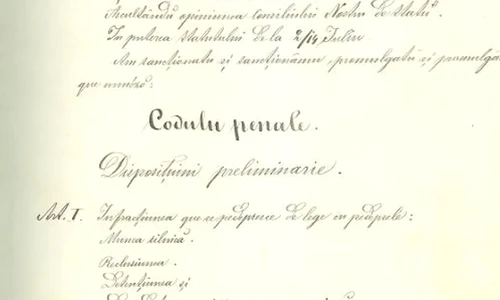 Ascultându opiniunea consiliului Nostru de Statŭ.
In puterea Statutului de la 2/14 Iuliu
Am sancționatu și sancționămu, promulgatu și promulgă
que urméză:
Codulu penale.
Disposițiuni preliminarie.
Art. I. Infracțiunea que se pedepsesce de lege cu pedepsele:
Munca silnică.
Reclusiunea.
Detențiunea și